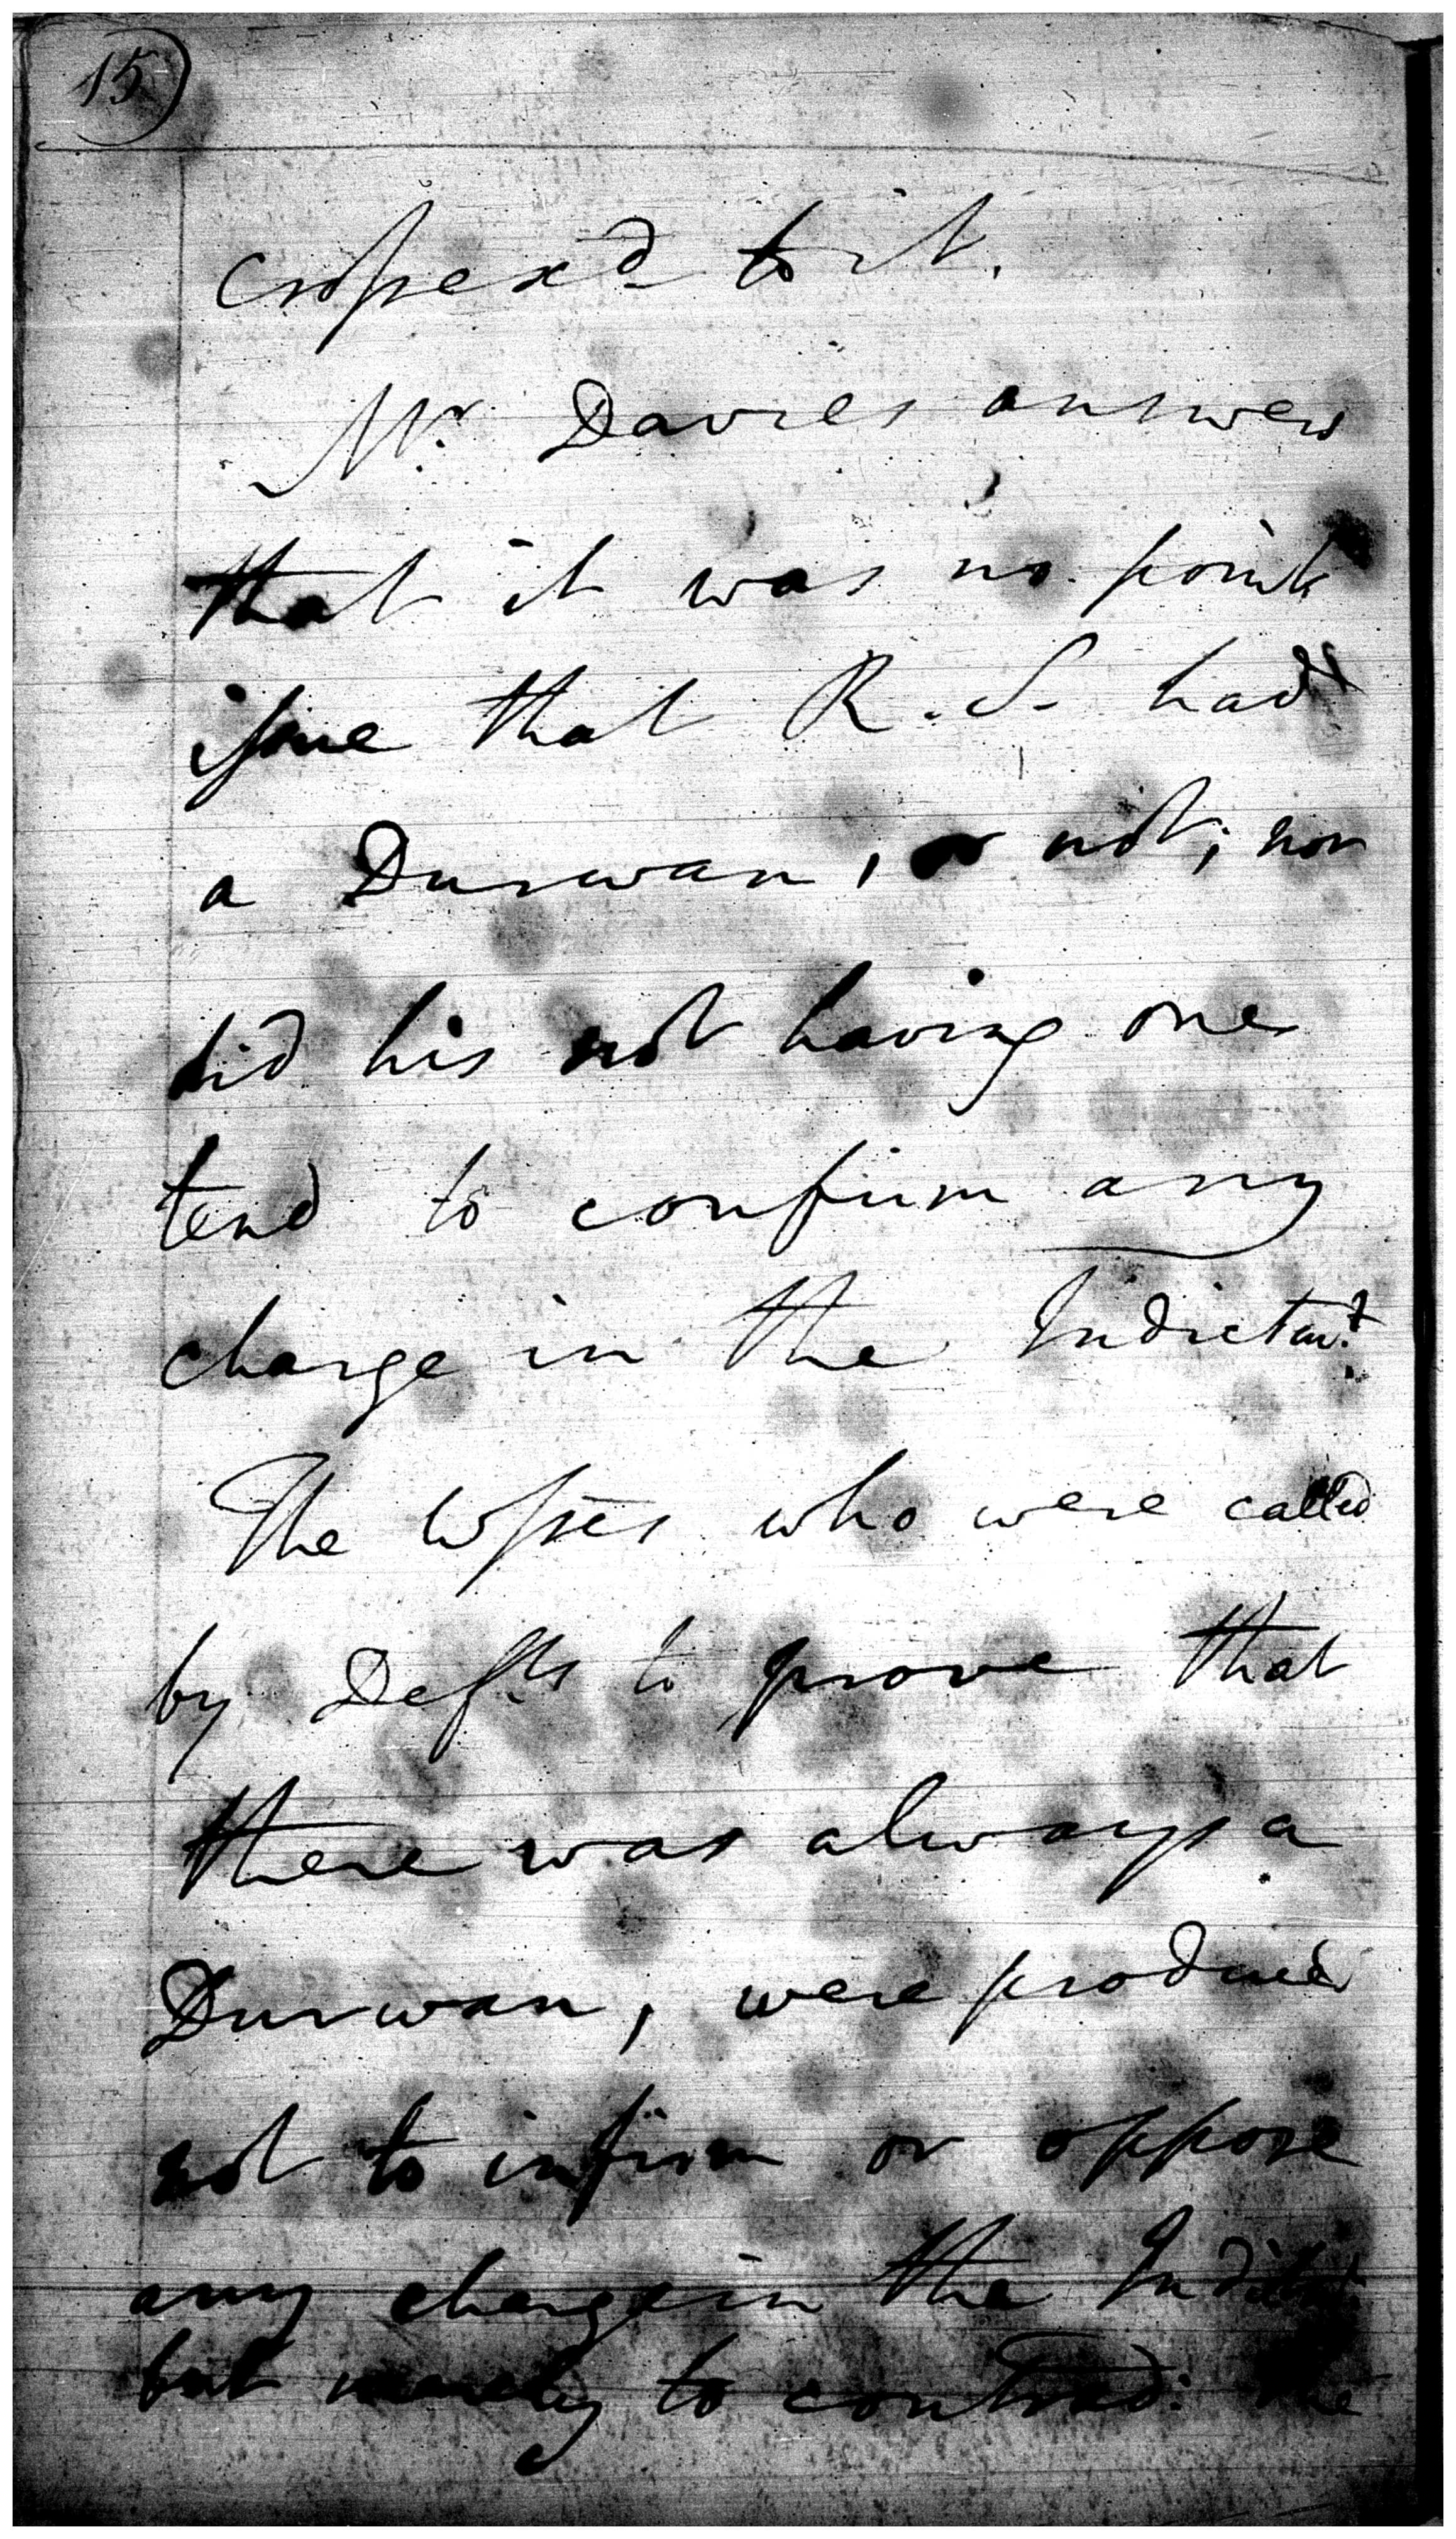 15
crossexd to it.
Mr Davies answers
that it was no point
issue that R. S. had
a Durwan, or not; nor
did his not having one
tend to confirm any
charge in the Indictmt.
The Wsses who were called
by Defts to prove that
there was always a
Durwan, were produced
not to infirm or oppose
any charge in the Indictmt.
but merely to contrad: the